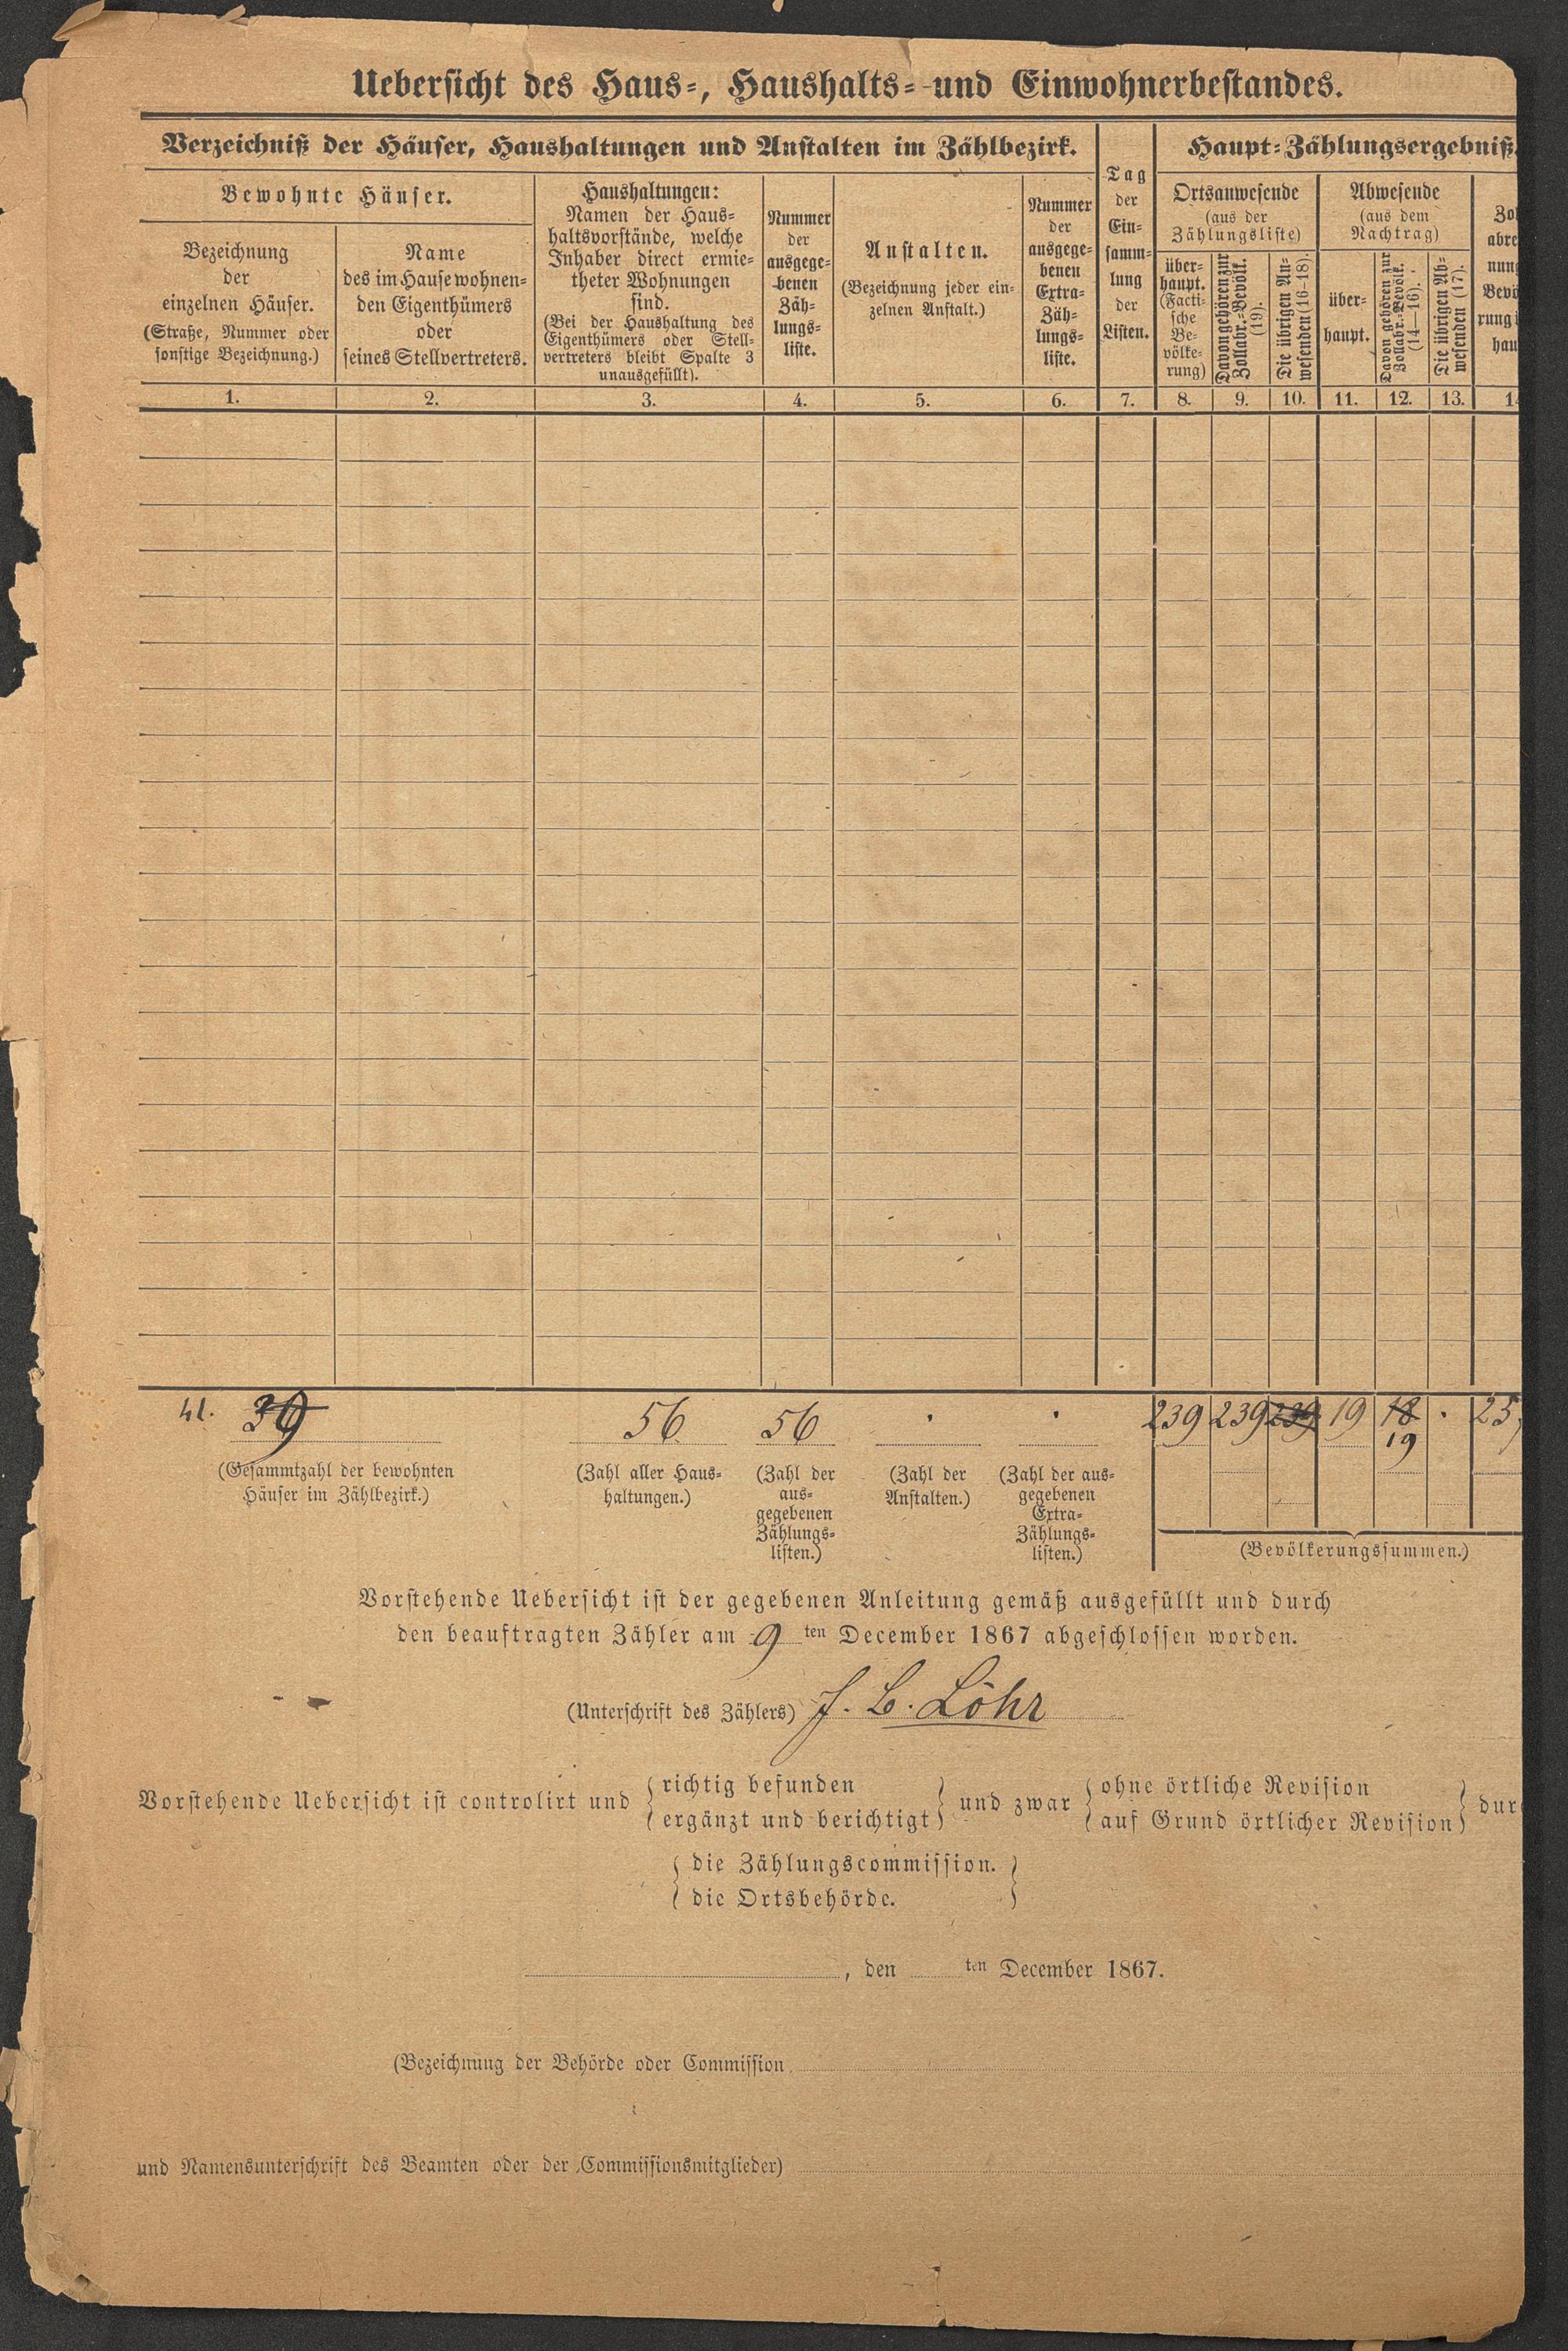 Uebersicht des Haus-, Haushalts- und Einwohnerbestandes.
Verzeichniß der Häuser, Haushaltungen und Anstalten im Zählbezirk.
Bewohnte Häuser.
Bezeichnung
der
einzelnen Häuser.
(Straße, Nummer oder
sonstige Bezeichnung.)
Name
des im Hause wohnen-
den Eigenthümers
oder
seines Stellvertreters.
Haushaltungen:
Namen der Haus-
haltsvorstände, welche
Inhaber direct ermie-
theter Wohnungen
sind.
(Bei der Haushaltung des
Eigenthümers oder Stell-
vertreters bleibt Spalte 3
unausgefüllt).
Nummer
der
ausgege-
benen
Zäh-
lungs-
liste.
Anstalten.
(Bezeichnung jeder ein-
zelnen Anstalt.)
Nummer
der
ausgege-
benen
Extra-
Zäh-
lungs-
liste.
Tag
der
Ein-
samm-
lung
der
Listen.
Haupt-Zählungsergebniß.
Ortsanwesende
(aus der
Zählungsliste)
über-
haupt.
(Facti-
sche
Be-
völke-
rung)
Davon gehören zur
Zollabr.-Bevölk.
(19).
Die übrigen An-
wesenden (16-18).
Abwesende
(aus dem
Nachtrag)
über-
haupt.
Davon gehören zur
Zollabr.-Bevölk.
(14—16).
Die übrigen Ab-
wesenden (17).
Zol
abre
nung
Bevö
rung
hau
1. 2. 3. 4. 5. 6. 7. 8. 9. 10. 11. 12. 13. 1
41. 39 56 56 . . 239 239 239 19 18 . 25
19
(Gesammtzahl der bewohnten
Häuser im Zählbezirk.)
(Zahl aller Haus-
haltungen.)
(Zahl der
aus-
gegebenen
Zählungs-
listen.)
(Zahl der
Anstalten.)
(Zahl der aus-
gegebenen
Extra-
Zählungs-
listen.)
(Bevölkerungssummen.)
Vorstehende Uebersicht ist der gegebenen Anleitung gemäß ausgefüllt und durch
den beauftragten Zähler am 9 ten December 1867 abgeschlossen worden.
(Unterschrift des Zählers) J. L. Löhr
Vorstehende Uebersicht ist controlirt und { richtig befunden } und zwar { ohne örtliche Revision } dur
{ ergänzt und berichtigt } { auf Grund örtlicher Revision }
{ die Zählungscommission. }
{ die Ortsbehörde. }
, den ten December 1867.
(Bezeichnung der Behörde oder Commission
und Namensunterschrift des Beamten oder der Commissionsmitglieder)